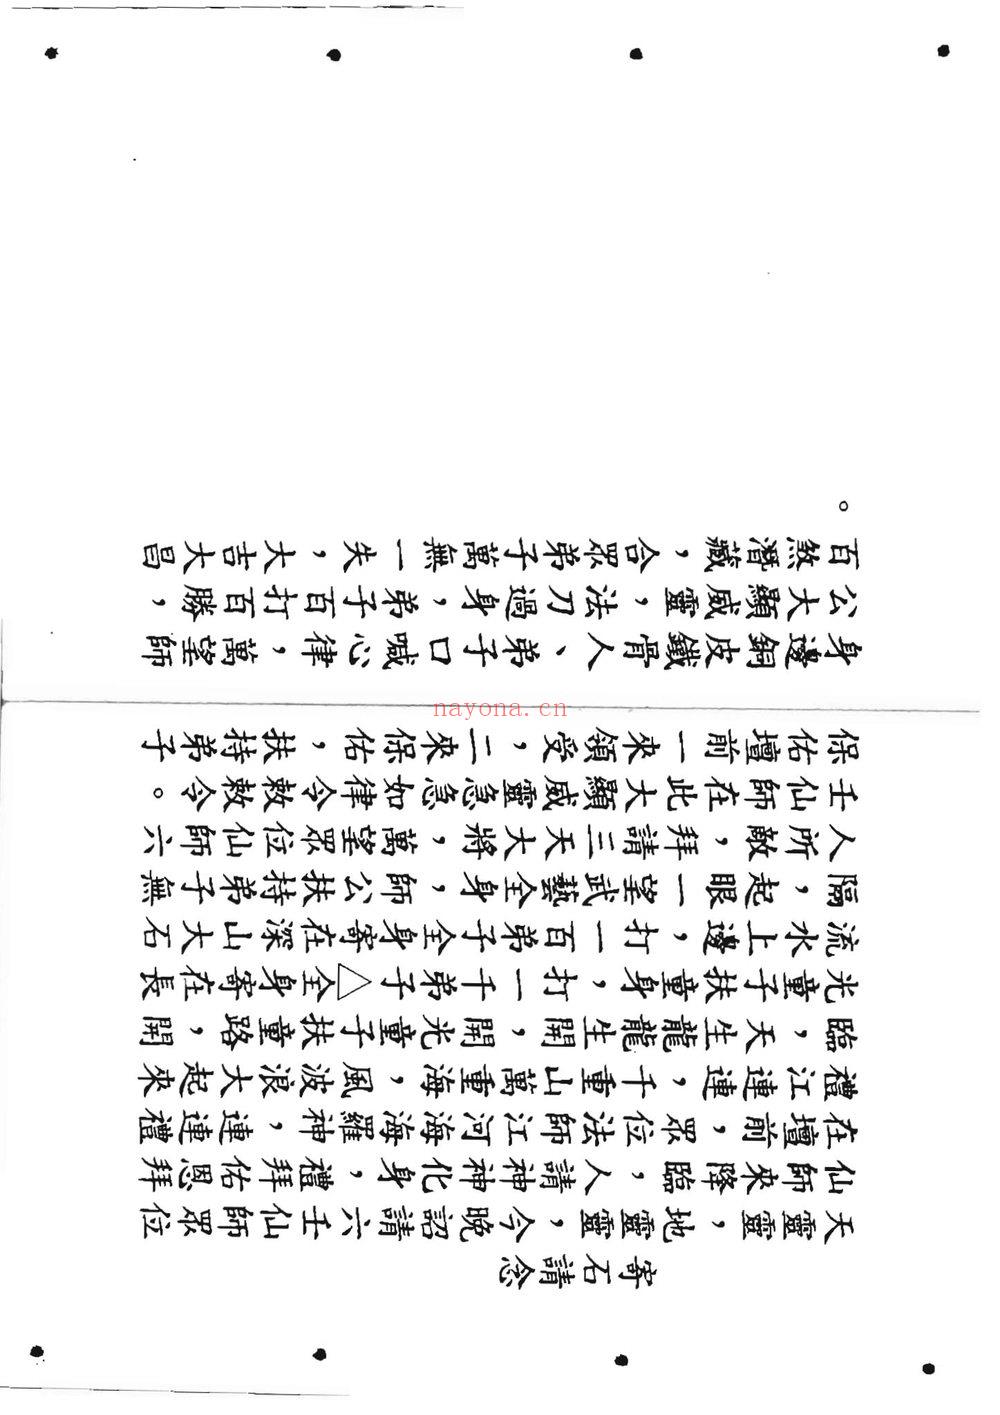 寄石請念
天靈靈，地靈靈，今晚詔請六壬仙師眾位
仙師來降臨，人請神神化身，禮拜佑恩拜
在壇前，眾位法師江河海海羅神，連連禮
禮江連連，千重山萬重海，風波浪大起來
臨，天生龍龍生開，開光童子扶童路，開
光童子扶童身，打一千弟子△全身寄在長
流水上邊，打一百弟子全身寄在深山大石
隔，起眼一望武藝全身，師公扶持弟子無
人所敵，拜請三天大將，萬望眾位仙師六
壬仙師在此大顯威靈急急如律令敕敕令。
保佑壇前一來領受，二來保佑，扶持弟子
身邊銅皮鐵骨人、弟子口喊心律，萬望師
公大顯威靈，法刀過身，弟子百打百勝，
百煞潛藏，合眾弟子萬無一失，大吉大昌
。
nayona.cn